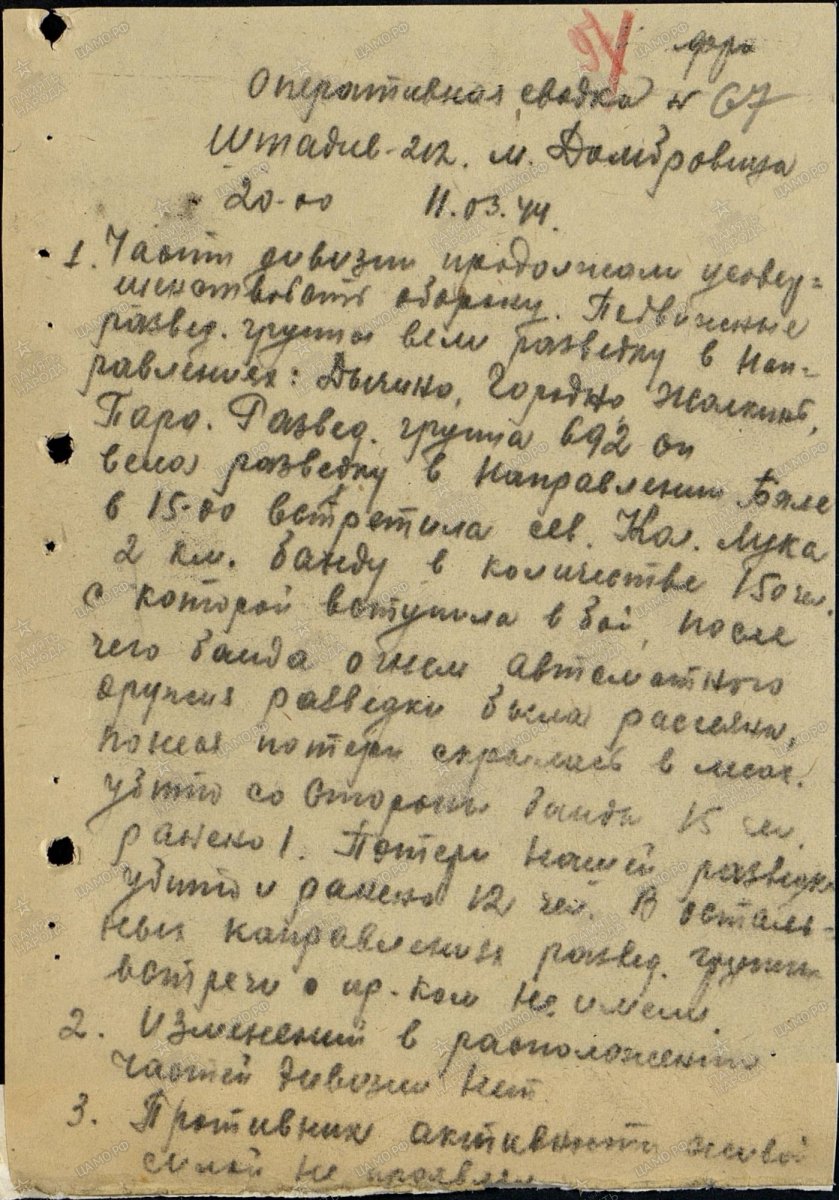 Оперативная сводка № 67
Штадив-212. м. Домбровица
20-00 11.03.44.
1. Части дивизии продолжали усовер=
шенствовать оборону. Подвижные
развед. группы вели разведку в нап-
равлениях: Дычино, Городно,
Паро. Развед. группа 692 сп
вела разведку в направлении Бяле
в 15-00 встретила сев. Ка. Лука
2 км. банду в количестве 150 чел.
с которой вступила в бой, после
чего банда огнем автоматного
оружия разведки была рассеяна,
понеся потери скрылась в лесах.
убито со стороны банды 15 чел.
ранено 1. Потери нашей разведки
убито и ранено 12 чел. В осталь-
ных направлениях развед. группы
встречи с пр-ком не имели.
2. Изменений в расположении
частей дивизии нет
3. Противник активности живой
силой не проявлял